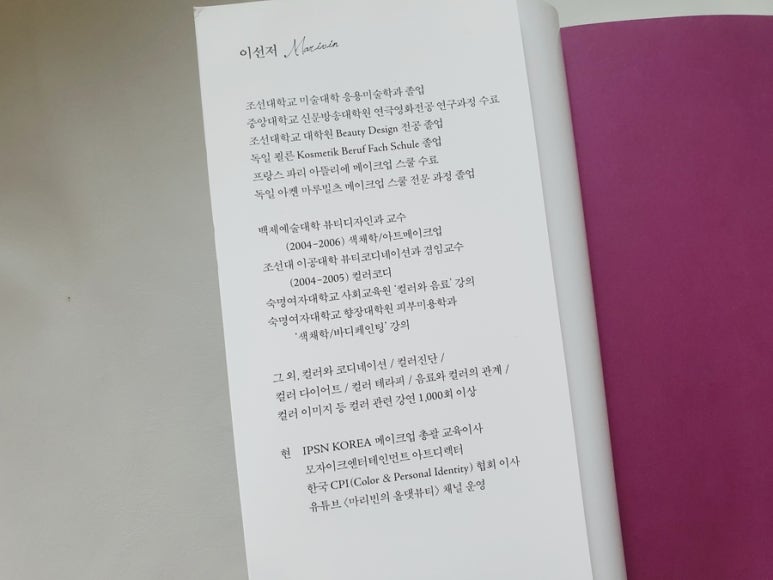 이선저 Marivin
조선대학교 미술대학 응용미술학과 졸업
중앙대학교 신문방송대학원 연극영화전공 연구과정 수료
조선대학교 대학원 Beauty Design 전공 졸업
독일 쾰른 Kosmetik Beruf Fach Schule 졸업
프랑스 파리 아뜰리에 메이크업 스쿨 수료
독일 아켄 마루빌츠 메이크업 스쿨 전문 과정 졸업
백제예술대학 뷰티디자인과 교수
(2004-2006) 색채학/아트메이크업
조선대 이공대학 뷰티코디네이션과 겸임교수
(2004-2005) 컬러코디
숙명여자대학교 사회교육원 '컬러와 음료' 강의
숙명여자대학교 향장대학원 피부미용학과
'색채학/바디페인팅' 강의
그 외, 컬러와 코디네이션 / 컬러진단 /
컬러 다이어트 / 컬러 테라피 / 음료와 컬러의 관계 /
컬러 이미지 등 컬러 관련 강연 1,000회 이상
현 IPSN KOREA 메이크업 총괄 교육이사
모자이크엔터테인먼트 아트디렉터
한국 CPI(Color & Personal Identity) 협회 이사
유튜브 〈마리빈의 올댓뷰티〉 채널 운영